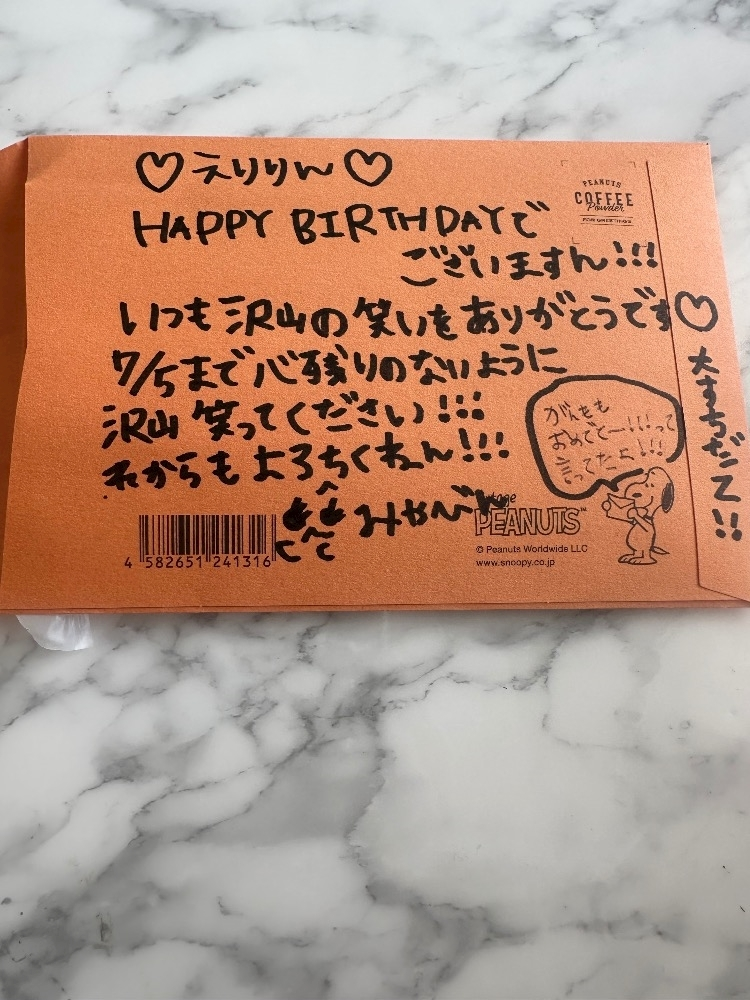 ♡えりりん♡
HAPPY BIRTHDAYで
ございますん!!!
いつも沢山の笑いをありがとうです♡
7/5まで心残りのないように
沢山笑ってください!!!
れからもよろちくねん!!!
みやび
大すちだて!!
がんも
おめでとー!!!って
言ってたよ!!!
PEANUTS
COFFEE
Powder
FOR GREETINGS
4 582651 241316
PEANUTS™
© Peanuts Worldwide LLC
www.snoopy.co.jp